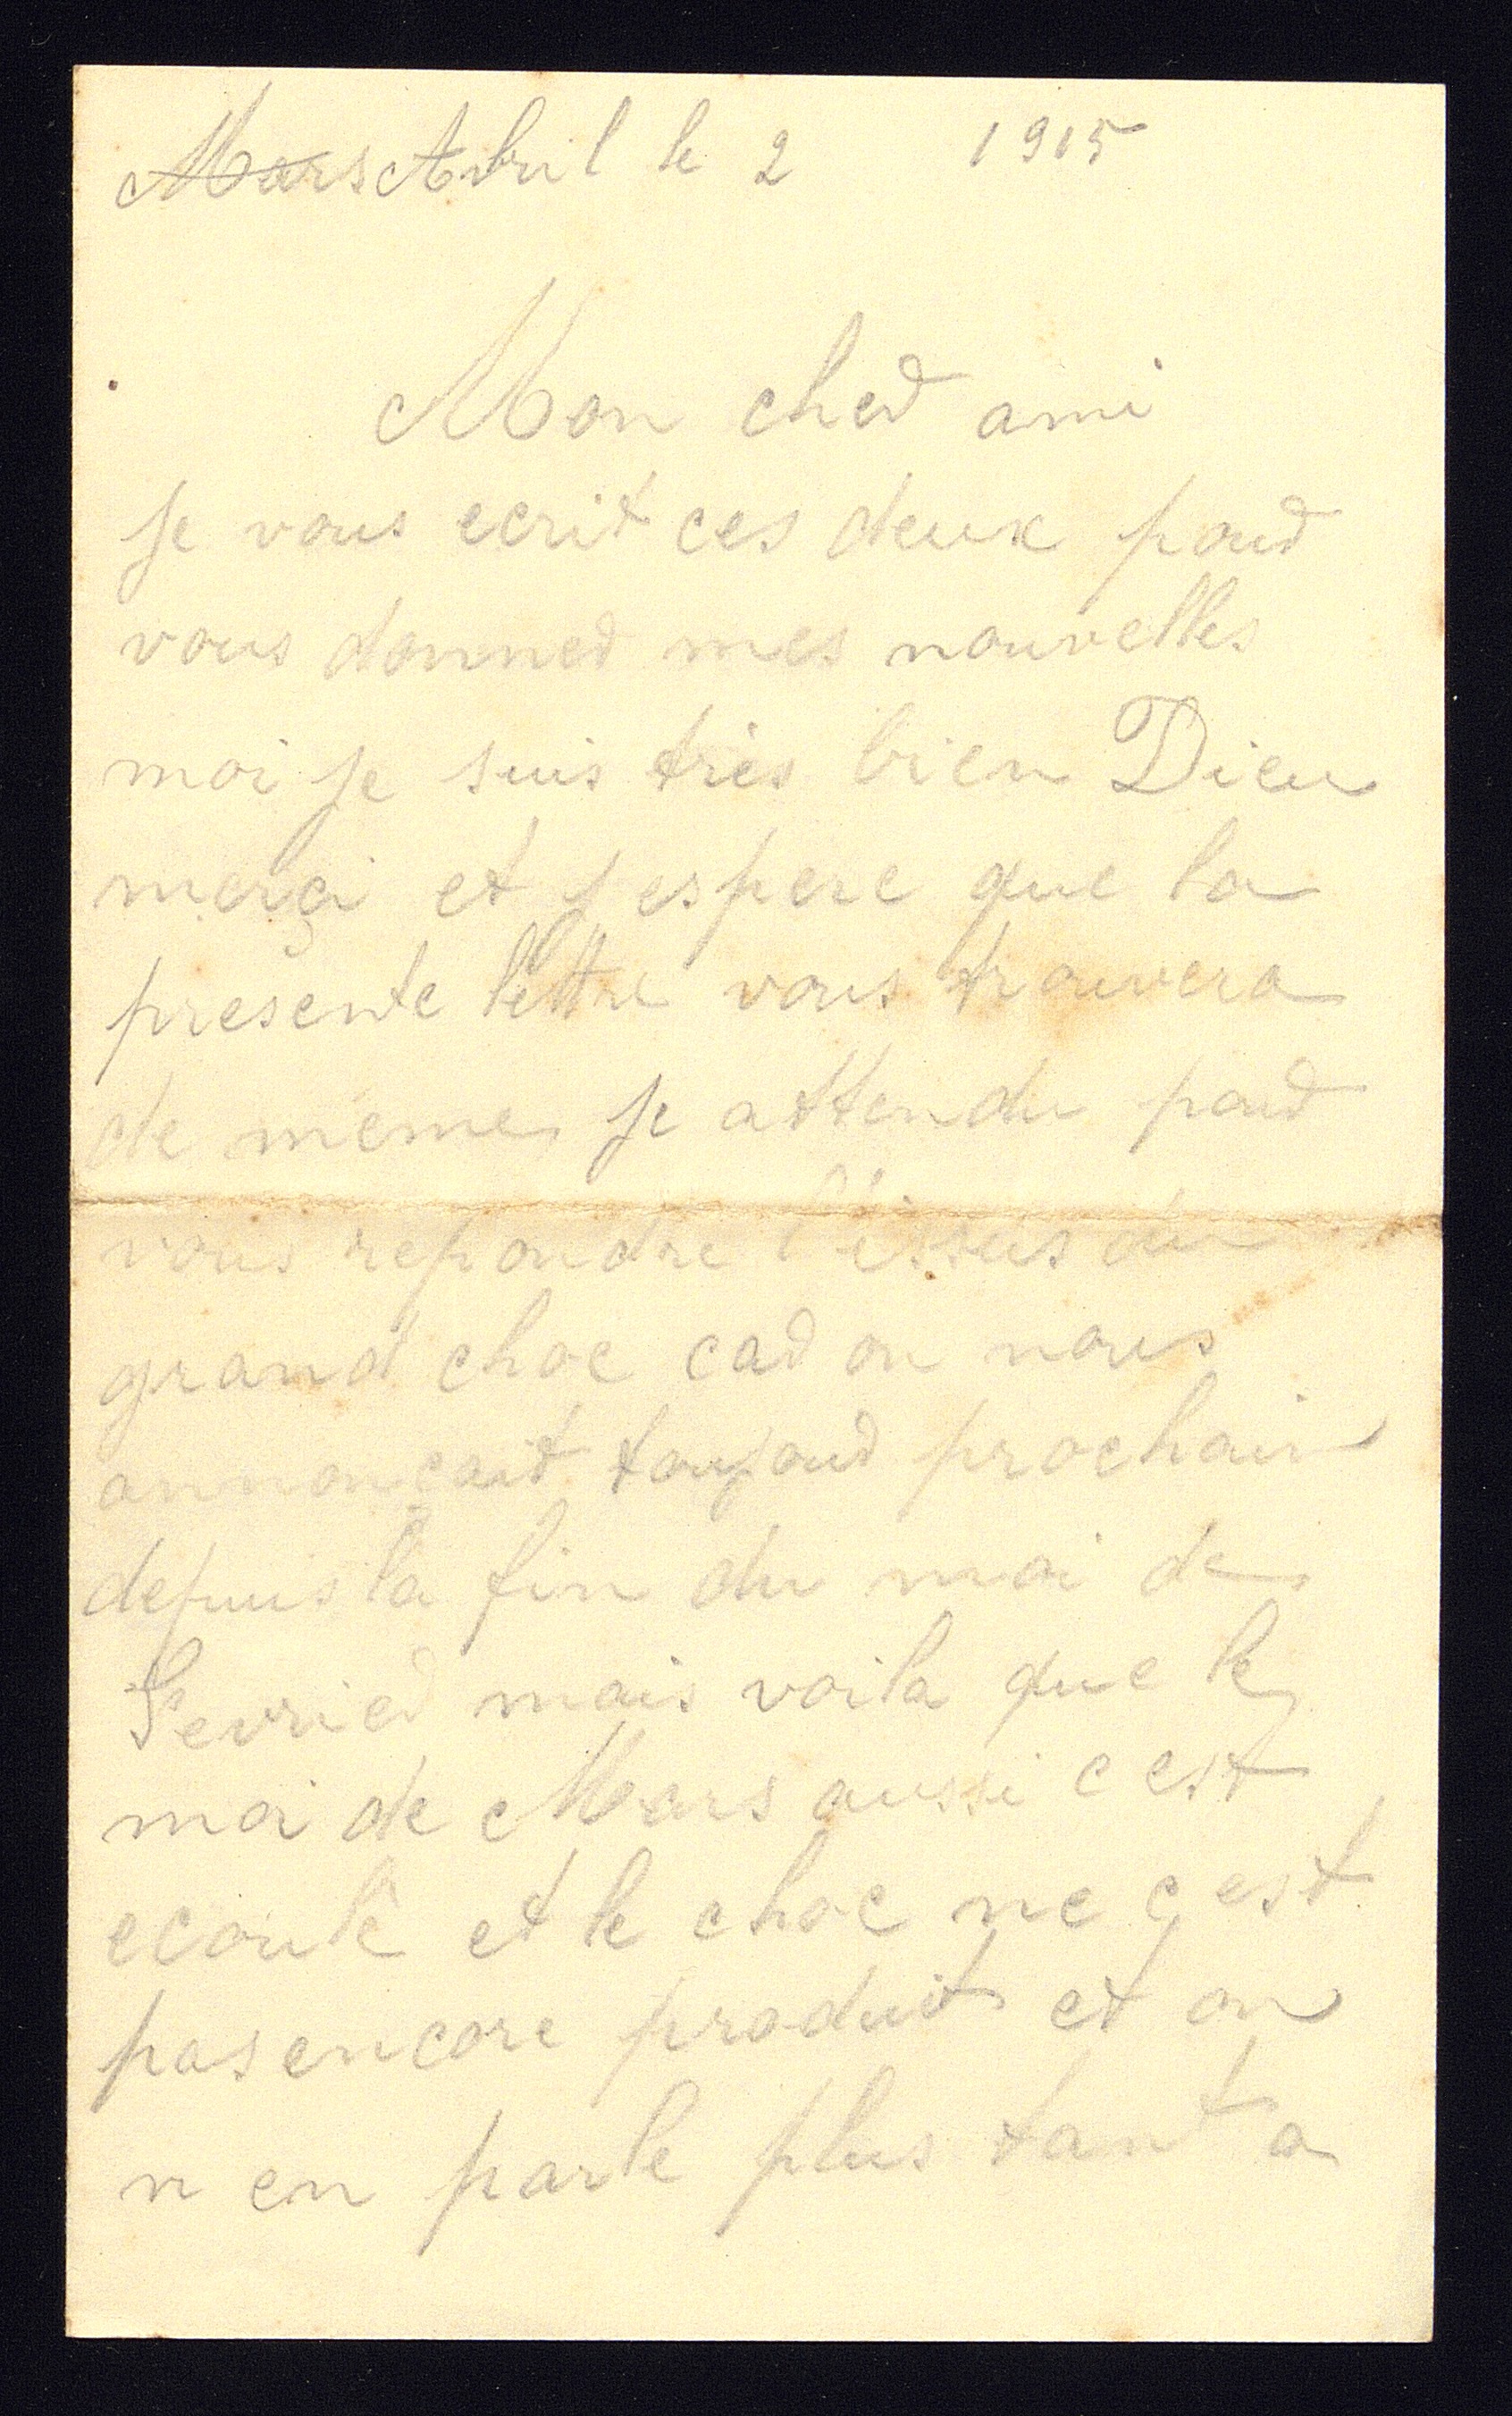 ~~Mars~~ Avril le 2 1915
Mon cher ami
Je vous ecrit ces deux pour
vous donner mes nouvelles
moi je suis très bien Dieu
merçi et j espere que la
presente lettre vous trouvera
de même, Je attendu pour
vous repondre l'issus du
grand choc car on nous
annonçait toujour prochain
depuis la fin du moi de
Fevrier mais voila que le
moi de Mars aussi c est
ecoulé et le choc ne c est
pas encore produit et on
n en parle plus tant a